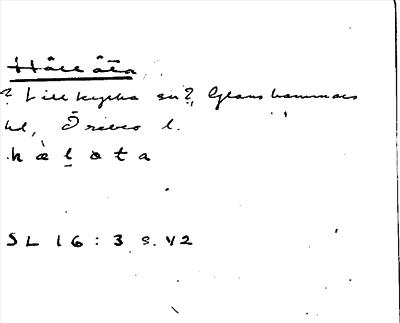 Hållåta
? Lillkyrka sn?, Glanshammars
hd, Örebro l.
hàl̠ota
SL 16:3 s. 42